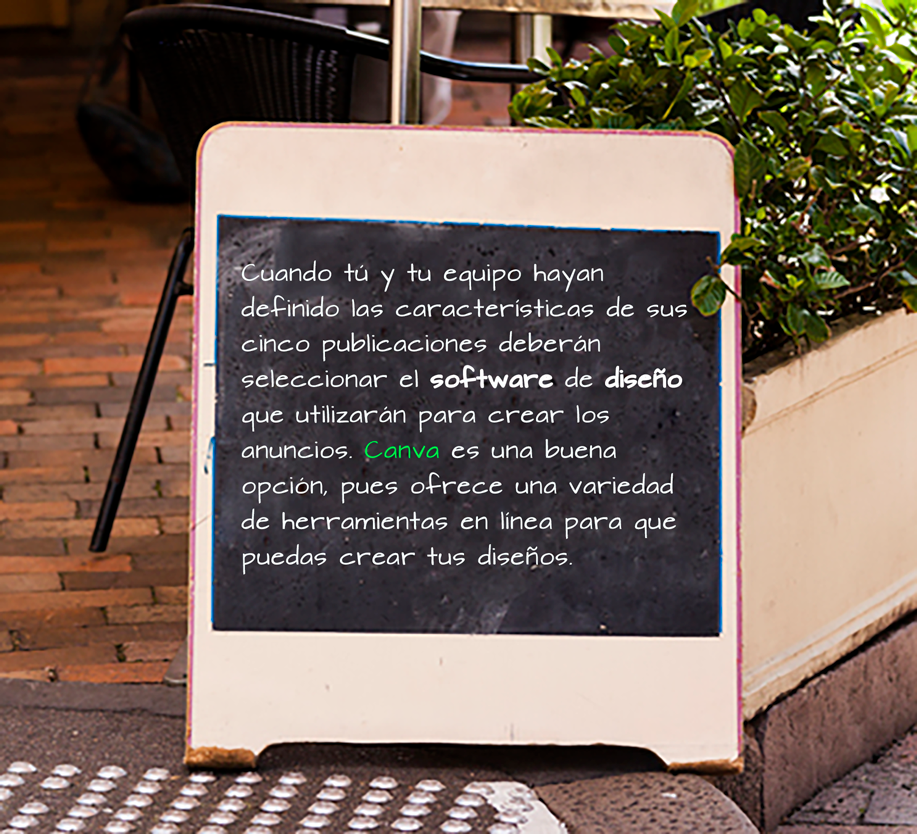 Cuando tú y tu equipo hayan
definido las características de sus
cinco publicaciones deberán
seleccionar el software de diseño
que utilizarán para crear los
anuncios. Canva es una buena
opción, pues ofrece una variedad
de herramientas en línea para que
puedas crear tus diseños.